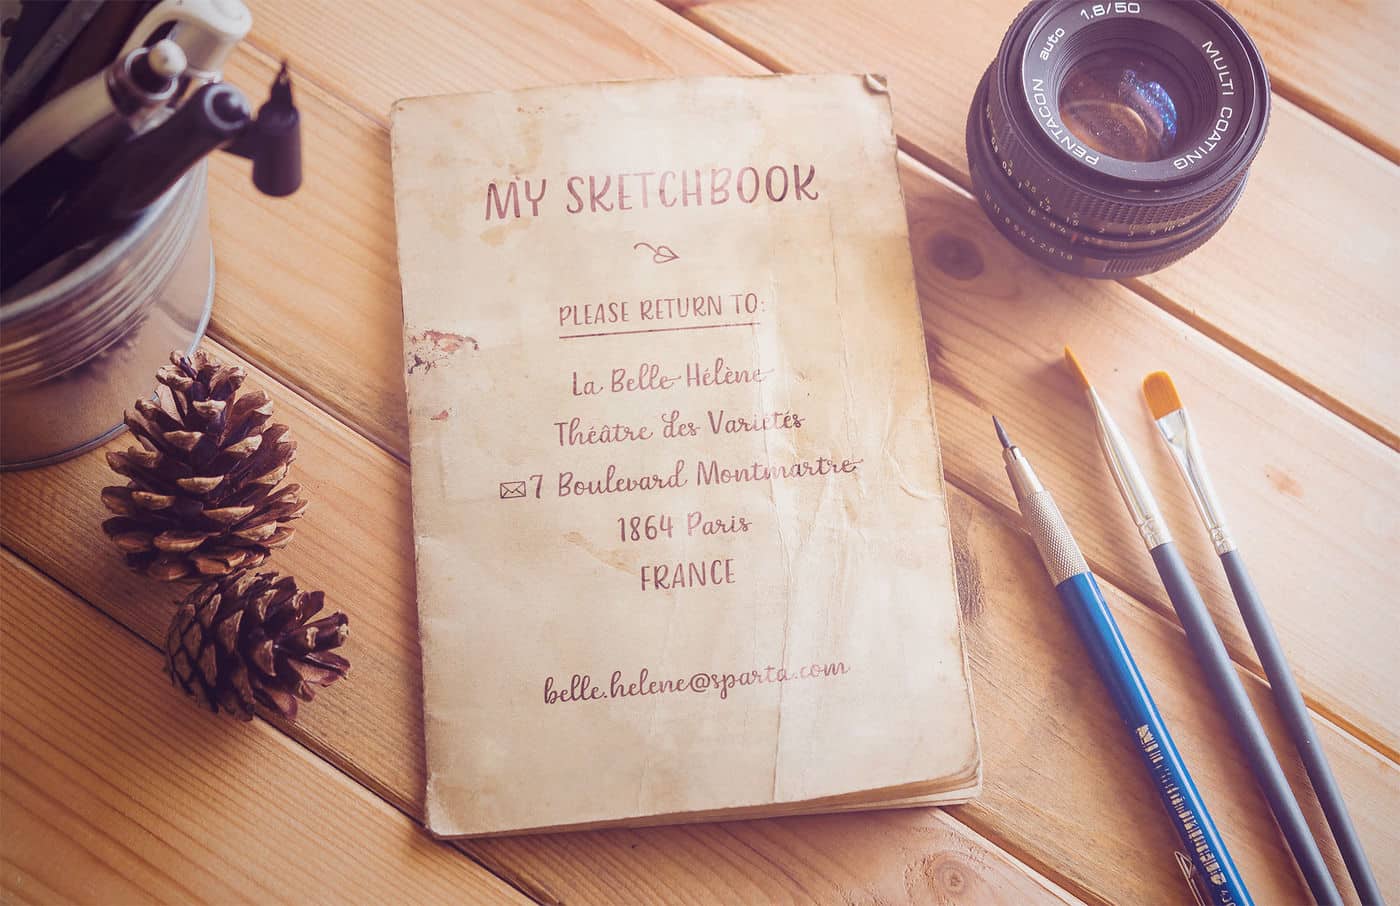 MY SKETCHBOOK
PLEASE RETURN TO:
La Belle Hélène
Théâtre des Variétés
7 Boulevard Montmartre
1864 Paris
FRANCE
belle.helene@sparta.com
1.8/50
MULTI COATING
PENTACON auto